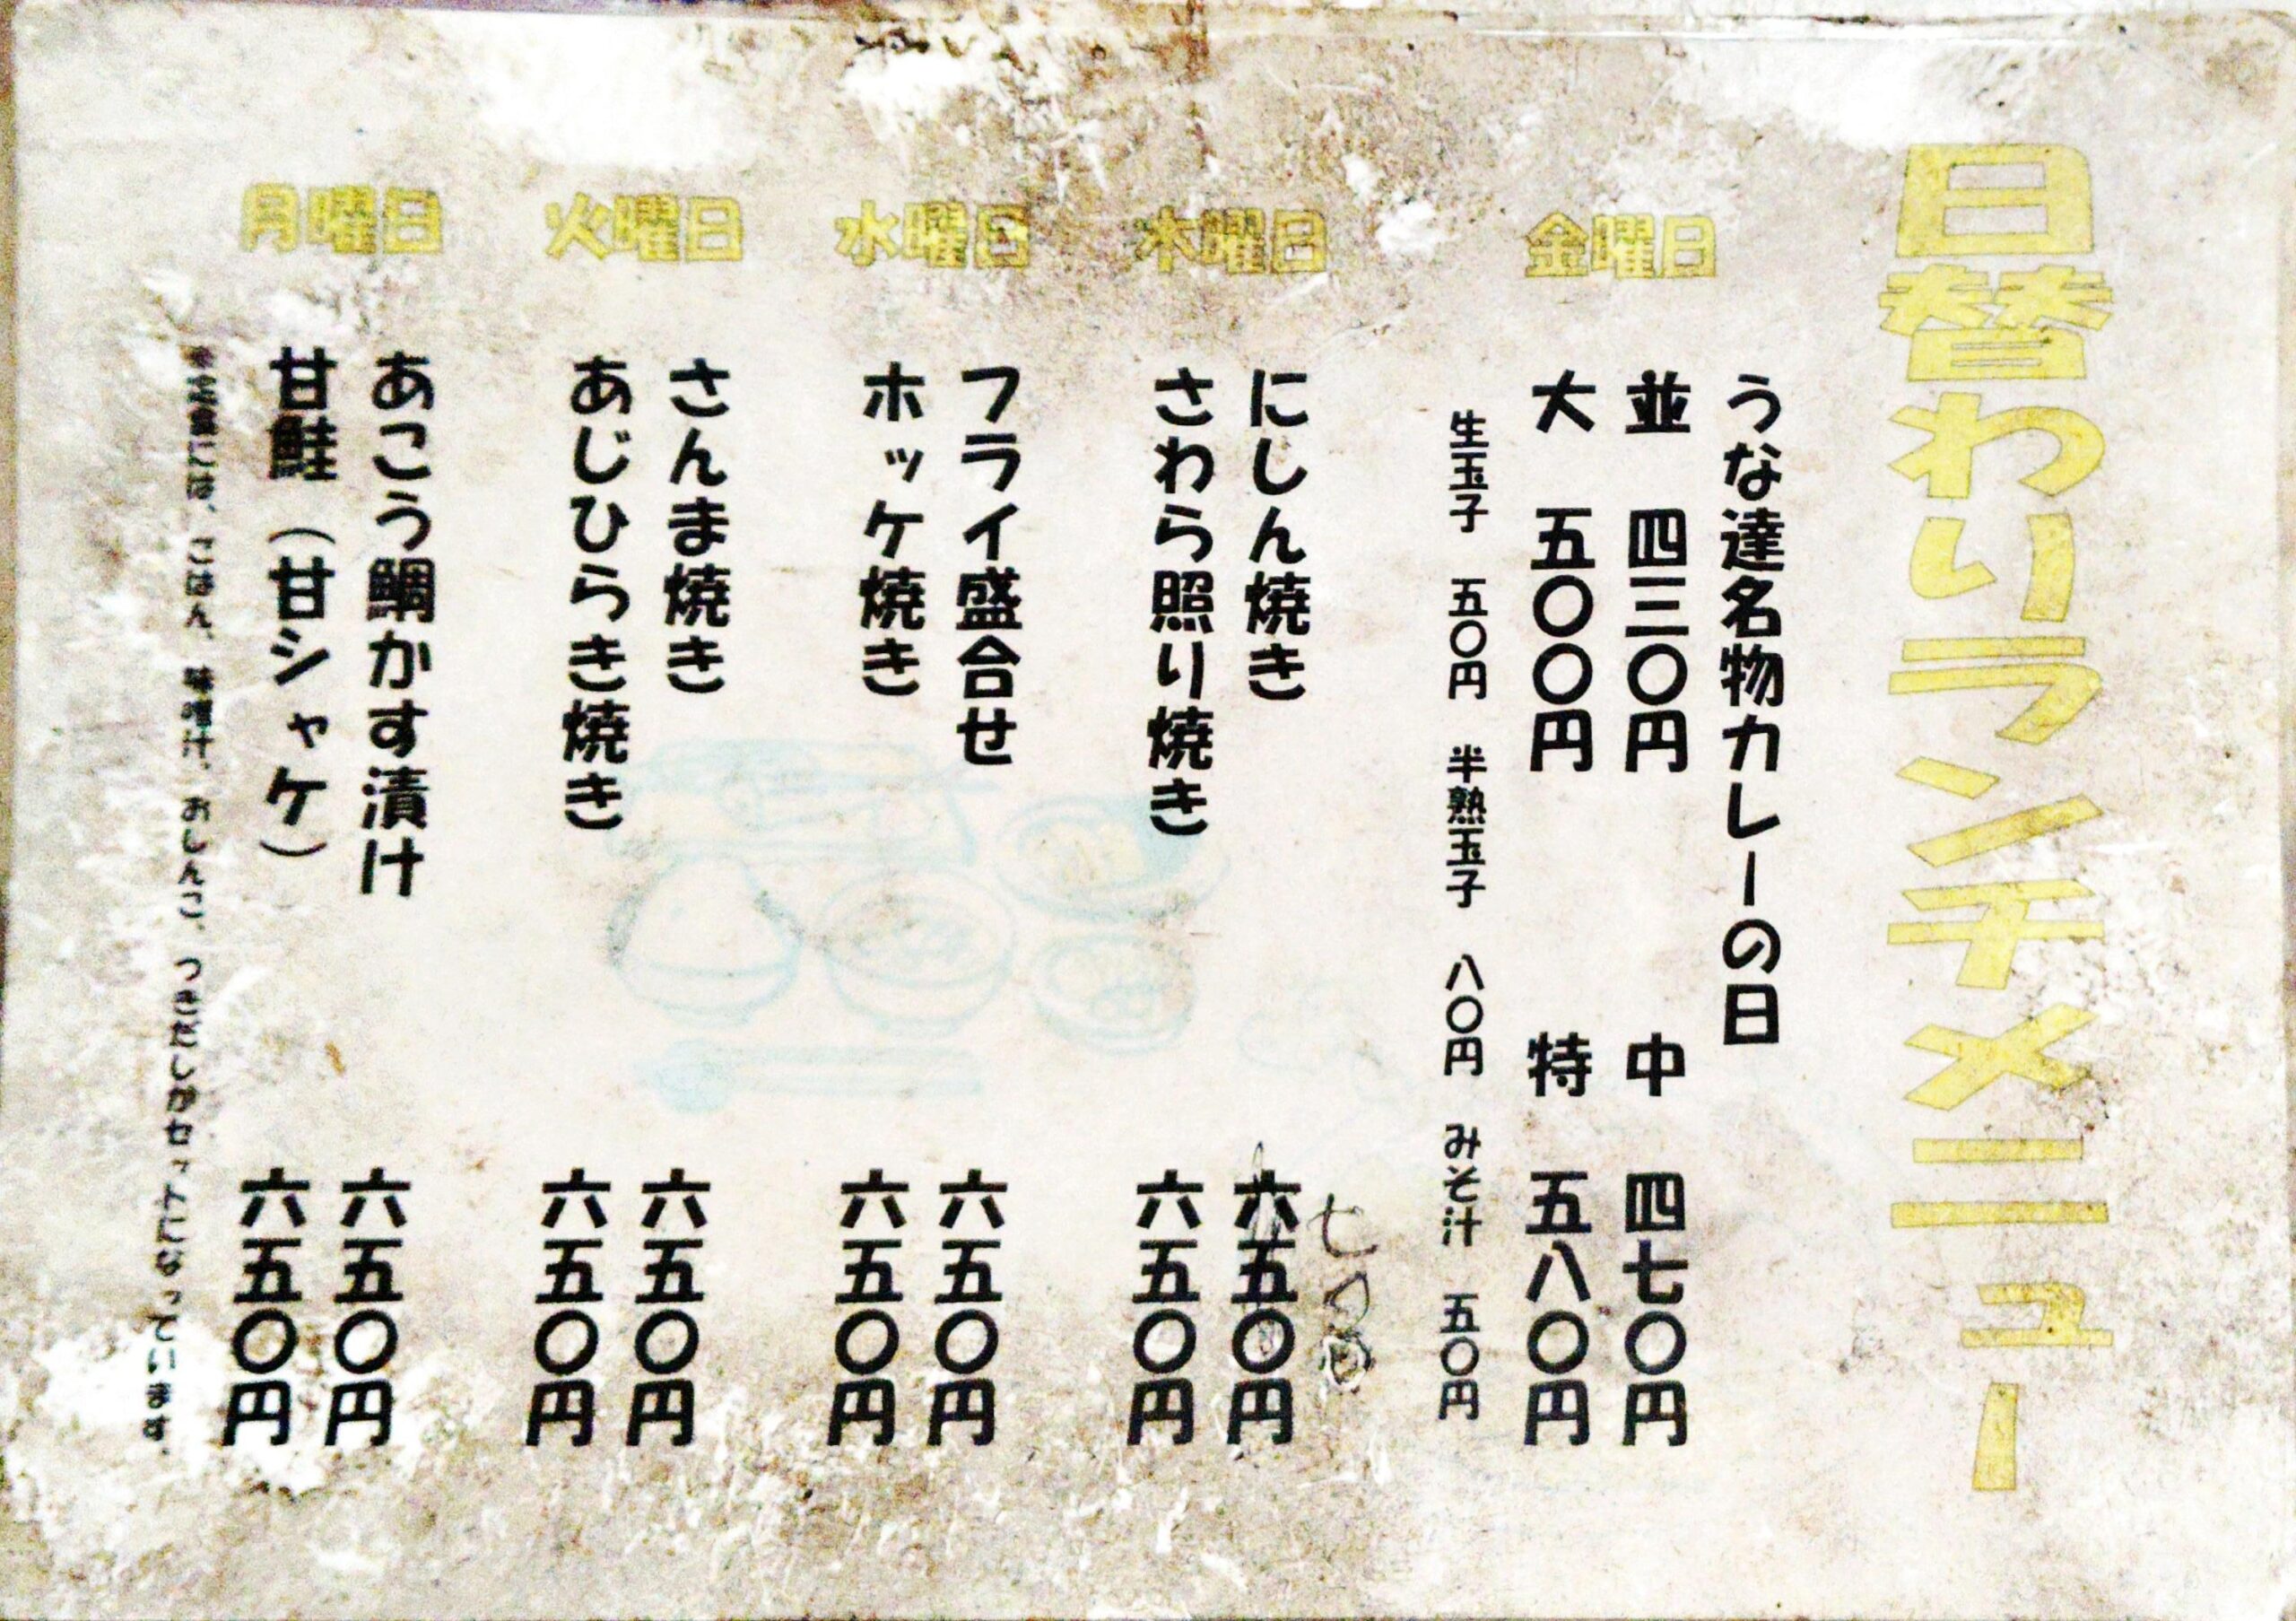 日替わりランチメニュー
金曜日
うな達名物カレーの日
並 四三〇円 中 四七〇円
大 五〇〇円 特 五八〇円
生玉子 五〇円 半熟玉子 八〇円 みそ汁 五〇円
木曜日
七
にしん焼き 六五〇円
さわら照り焼き 六五〇円
水曜日
フライ盛合せ 六五〇円
ホッケ焼き 六五〇円
火曜日
さんま焼き 六五〇円
あじひらき焼き 六五〇円
月曜日
あこう鯛かす漬け 六五〇円
甘鮭（甘シャケ） 六五〇円
には、ごはん、味噌汁、おしんこ、つきだしがセットになっています。